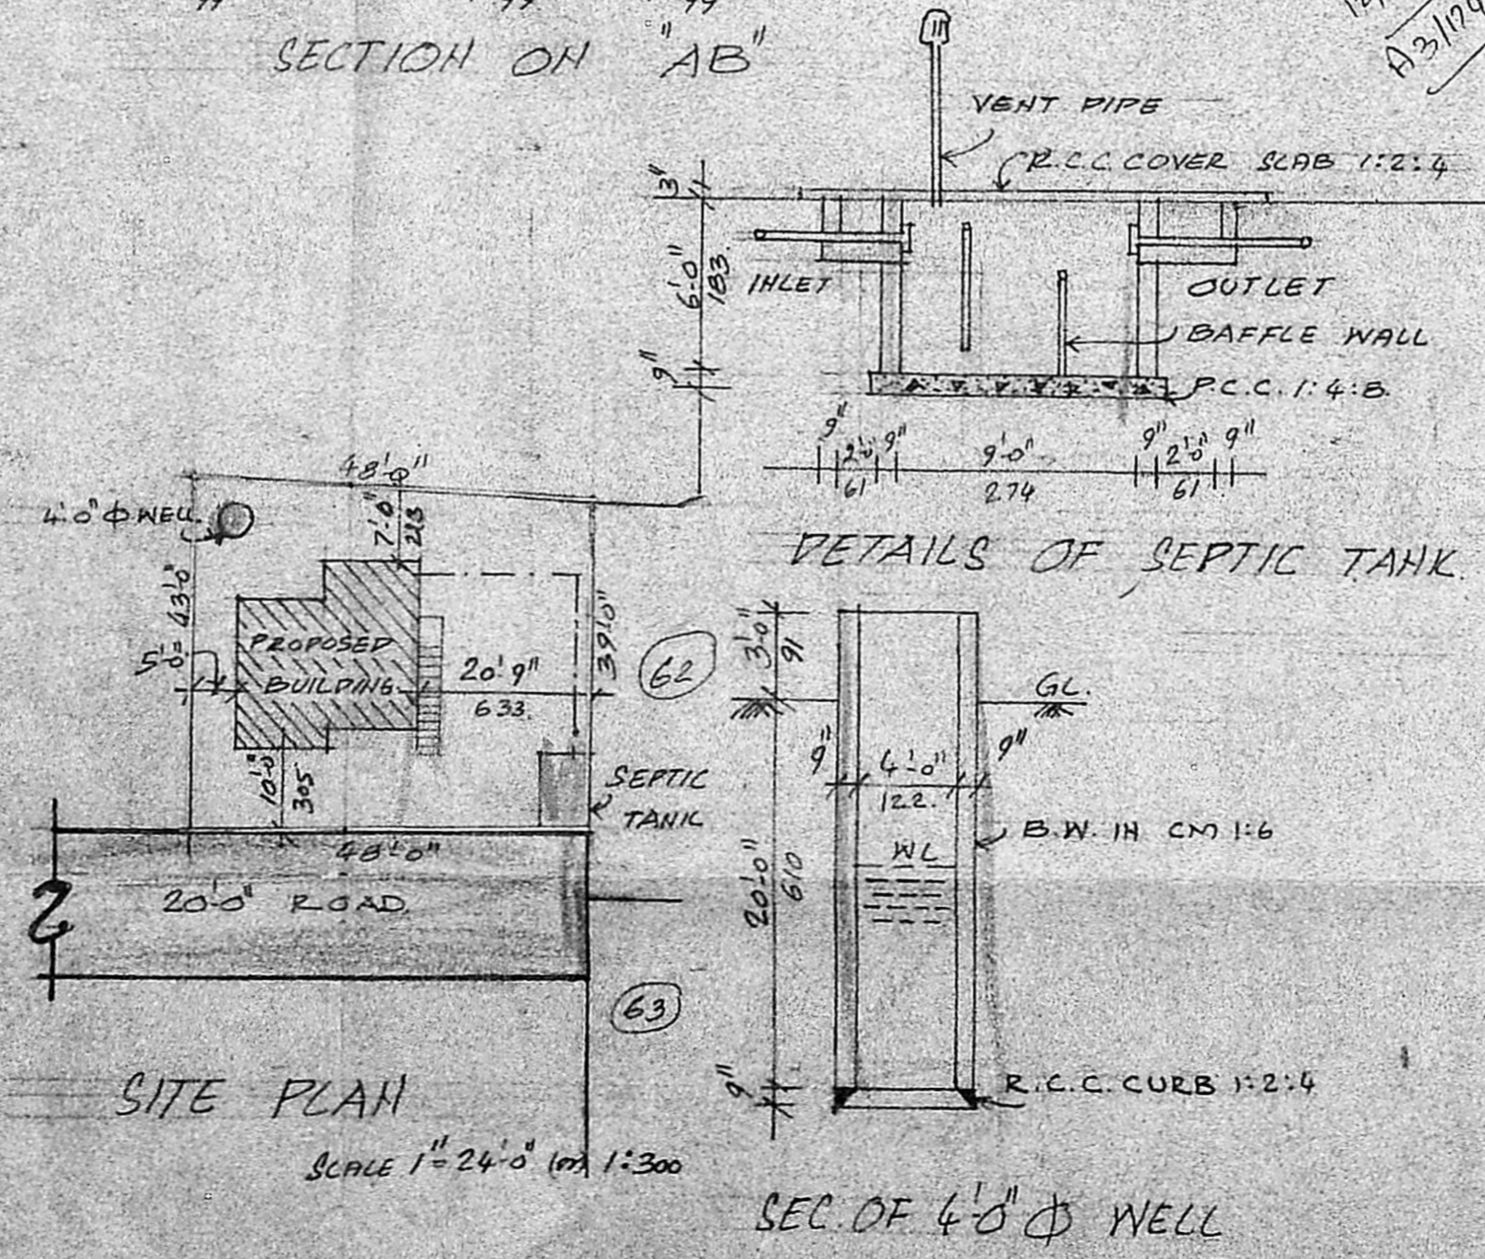 SECTION ON "AB"
A3/124
VENT PIPE
R.C.C. COVER SLAB 1:2:4
3"
6'-0"
183.
9"
INLET
OUTLET
BAFFLE WALL
P.C.C. 1:4:8.
9"
2'-0"
61
9"
9'-0"
274
9"
2'-0"
61
9"
DETAILS OF SEPTIC TANK.
48'-0"
4'-0" Φ WELL.
7'-0"
213
43'-0"
5'-0"
PROPOSED
BUILDING
20'-9"
633.
39'-0"
62
10'-0"
305
SEPTIC
TANK
48'-0"
20'-0" ROAD.
63
SITE PLAN
SCALE 1"=24'-0" (or) 1:300
3'-0"
91
GL.
9"
4'-0"
122.
9"
B.W. IN CM 1:6
WL
20'-0"
610
9"
R.C.C. CURB 1:2:4
SEC. OF 4'-0" Φ WELL